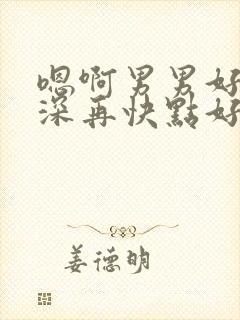 嗯啊男男好
深再快點好
姜德明